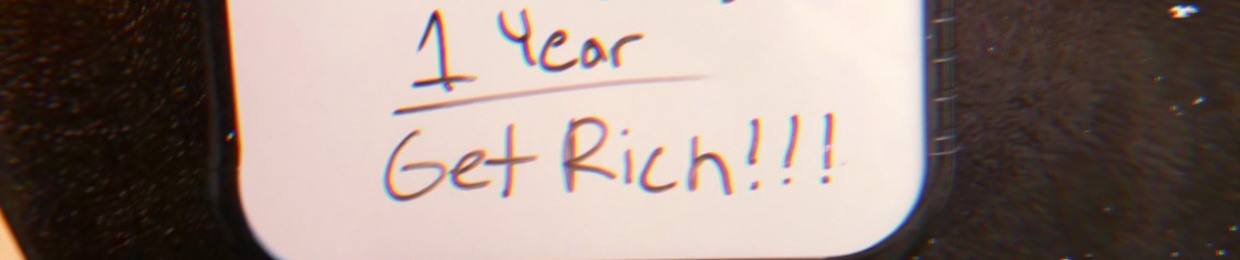 1 Year
Get Rich!!!